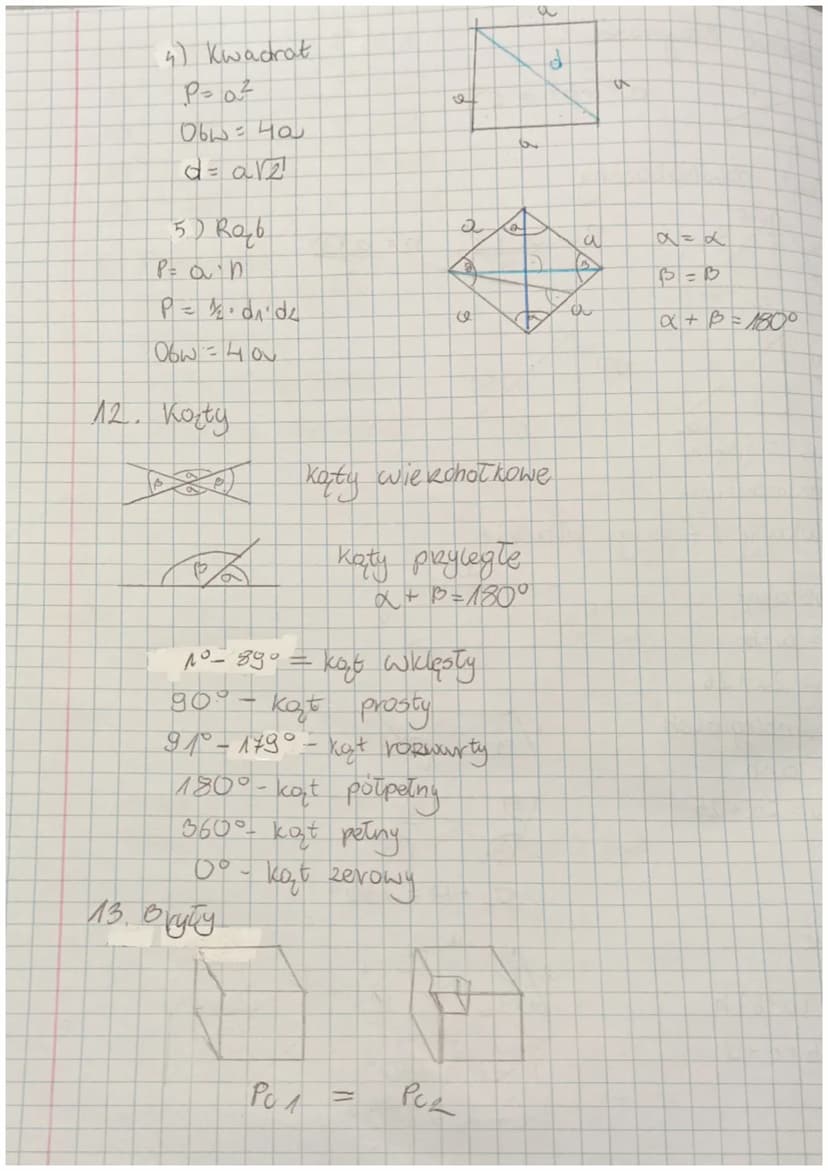 4) Kwadrat
P = a²
Obw = 4a
d = a√2
a
d
a
a
a
5) Rąb
P = a · h
P = ½ · d₁ · d₂
Obw = 4a
a
α
a
β
β
a
α
a
α = α
β = β
α + β = 180°
12. Kąty
α
β
β
α
kąty wierzchołkowe
β
α
kąty przyległe
α + β = 180°
1° - 89° = kąt wklęsły
90° - kąt prosty
91° - 179° - kąt rozwarty
180° - kąt półpełny
360° - kąt pełny
0° - kąt zerowy
13. Bryły
Pc₁ = Pc₂